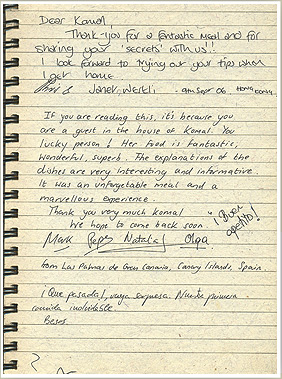 Dear Komal,
Thank you for a fantastic meal and for
sharing your 'secrets' with us!!
I look forward to trying our your tips when
I get home.
& Janet 9th Sept 06 Hong Kong.
If you are reading this, it's because you
are a guest in the house of Komal. You
lucky person! Her food is fantastic,
wonderful, superb. The explanations of the
dishes are very interesting and informative.
It was an unforgetable meal and a
marvellous experience.
Thank you very much Komal
We hope to come back soon.
¡Buen
apetito!
Mark Pepe Natalia Olga
from Las Palmas de Gran Canaria, Canary Islands, Spain.
¡Que pasada!, vaya sorpresa. Nuestra primera
comida inolvidable.
Besos.